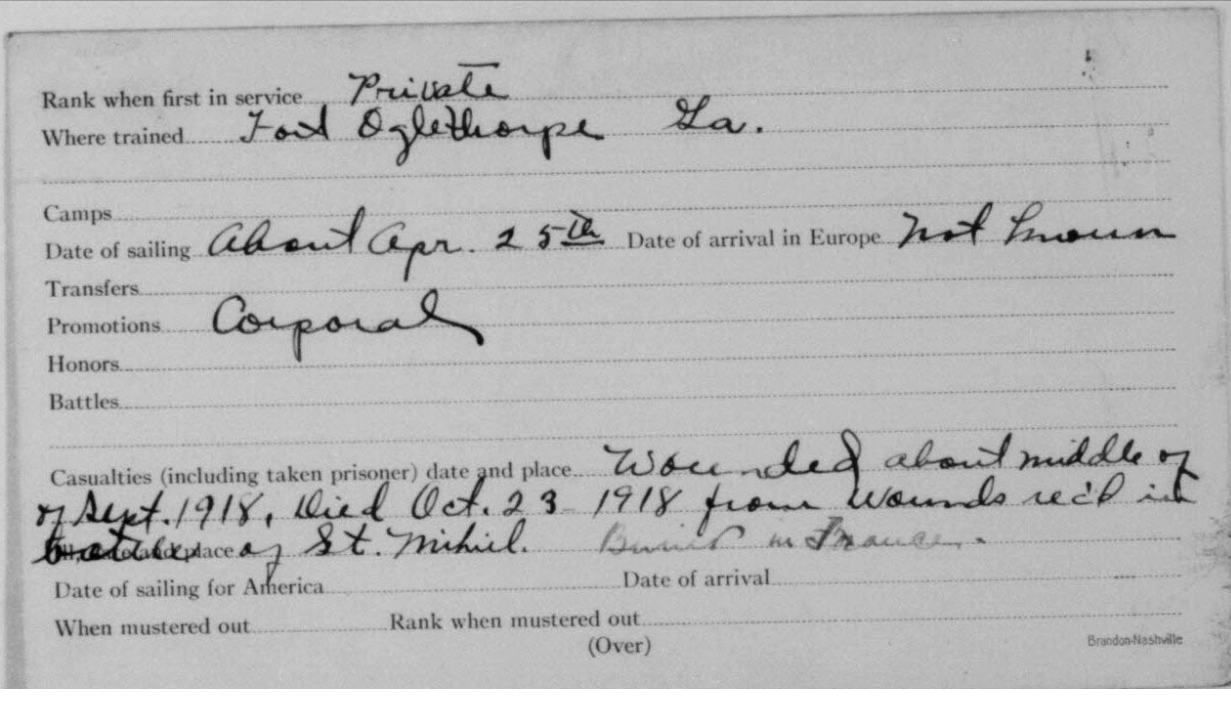 Rank when first in service Private
Where trained Fort Oglethorpe Ga.
Camps
Date of sailing About Apr. 25th Date of arrival in Europe Not Known
Transfers
Promotions Corporal
Honors
Battles
Casualties (including taken prisoner) date and place Wounded about middle of
of Sept. 1918, Died Oct. 23 1918 from Wounds rec'd in
battle of St. Mihiel. Buried in France.
Date of sailing for America Date of arrival
When mustered out Rank when mustered out
(Over)
Brandon-Nashville